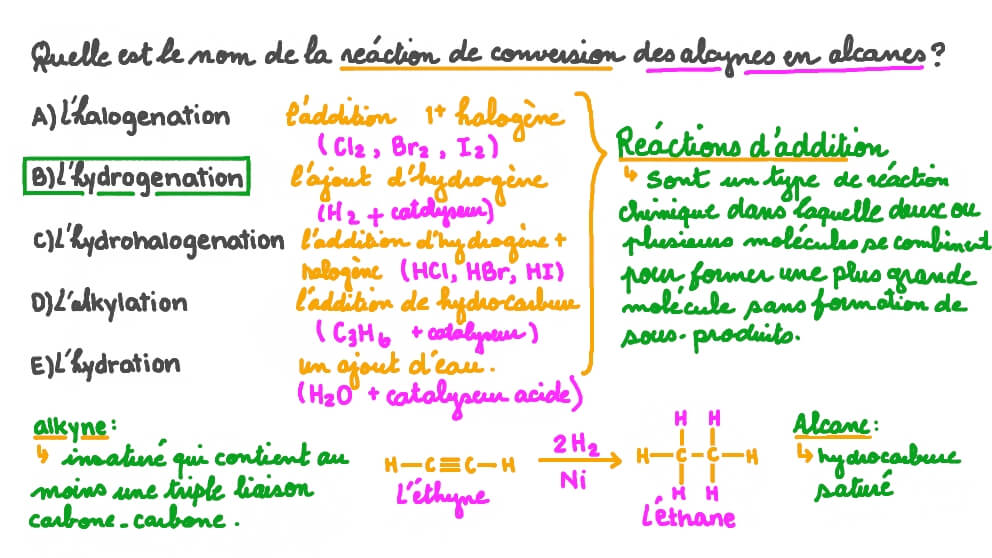 Quelle est le nom de la reáction de conversion des alcynes en alcanes?
A) L'halogenation l'addition 1+ halogène
(Cl2, Br2, I2)
B) L'hydrogenation l'ajout d'hydrogène
(H2 + catalyseur)
C) L'hydrohalogenation l'addition d'hydrogène +
halogène (HCl, HBr, HI)
D) L'alkylation l'addition de hydrocarbure
(C3H6 + catalyseur)
E) L'hydration un ajout d'eau.
(H2O + catalyseur acide)
Reáctions d'addition
↳ Sont un type de réáction
chimique dans laquelle deux ou
plusieurs molécules se combinent
pour former une plus grande
molécule sans formation de
sous-produits.
alkyne:
↳ insaturé qui contient au
moins une triple liaison
carbone-carbone.
H-C≡C-H
L'éthyne
2H2
Ni
H H
H-C-C-H
H H
L'éthane
Alcane:
↳ hydrocarbure
saturé